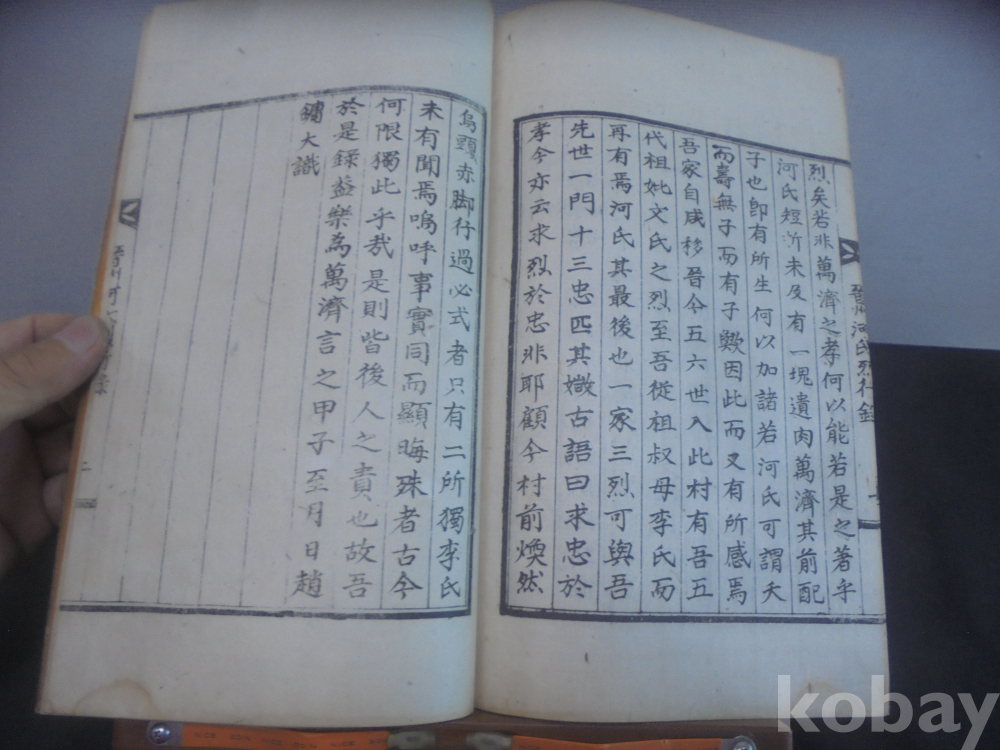 烈矣若非萬濟之孝何以能若是之著乎
河氏短折未及有一塊遺肉萬濟其前配
子也卽有所生何以加諸若河氏可謂夭
而壽無子而有子歟因此而又有所感焉
吾家自咸移晉今五六世入此村有吾五
代祖妣文氏之烈至吾從祖叔母李氏而
再有焉河氏其最後也一家三烈可與吾
先世一門十三忠匹其媺古語曰求忠於
孝今亦云求烈於忠非耶顧今村前煥然
晉州河氏烈行錄
烏頭赤脚行過必式者只有二所獨李氏
未有聞焉嗚呼事實同而顯晦殊者古今
何限獨此乎哉是則皆後人之責也故吾
於是錄益樂為萬濟言之甲子至月日趙
鏞大識
二
kobay